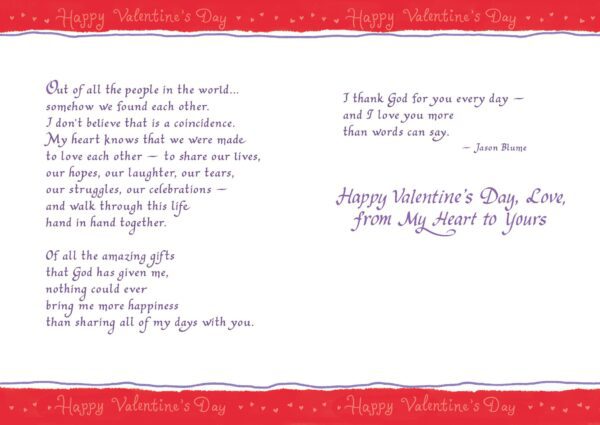 Happy Valentine's Day
Happy Valentine's Day
Out of all the people in the world...
somehow we found each other.
I don't believe that is a coincidence.
My heart knows that we were made
to love each other — to share our lives,
our hopes, our laughter, our tears,
our struggles, our celebrations —
and walk through this life
hand in hand together.
Of all the amazing gifts
that God has given me,
nothing could ever
bring me more happiness
than sharing all of my days with you.
I thank God for you every day —
and I love you more
than words can say.
— Jason Blume
Happy Valentine's Day, Love,
from My Heart to Yours
Happy Valentine's Day
Happy Valentine's Day